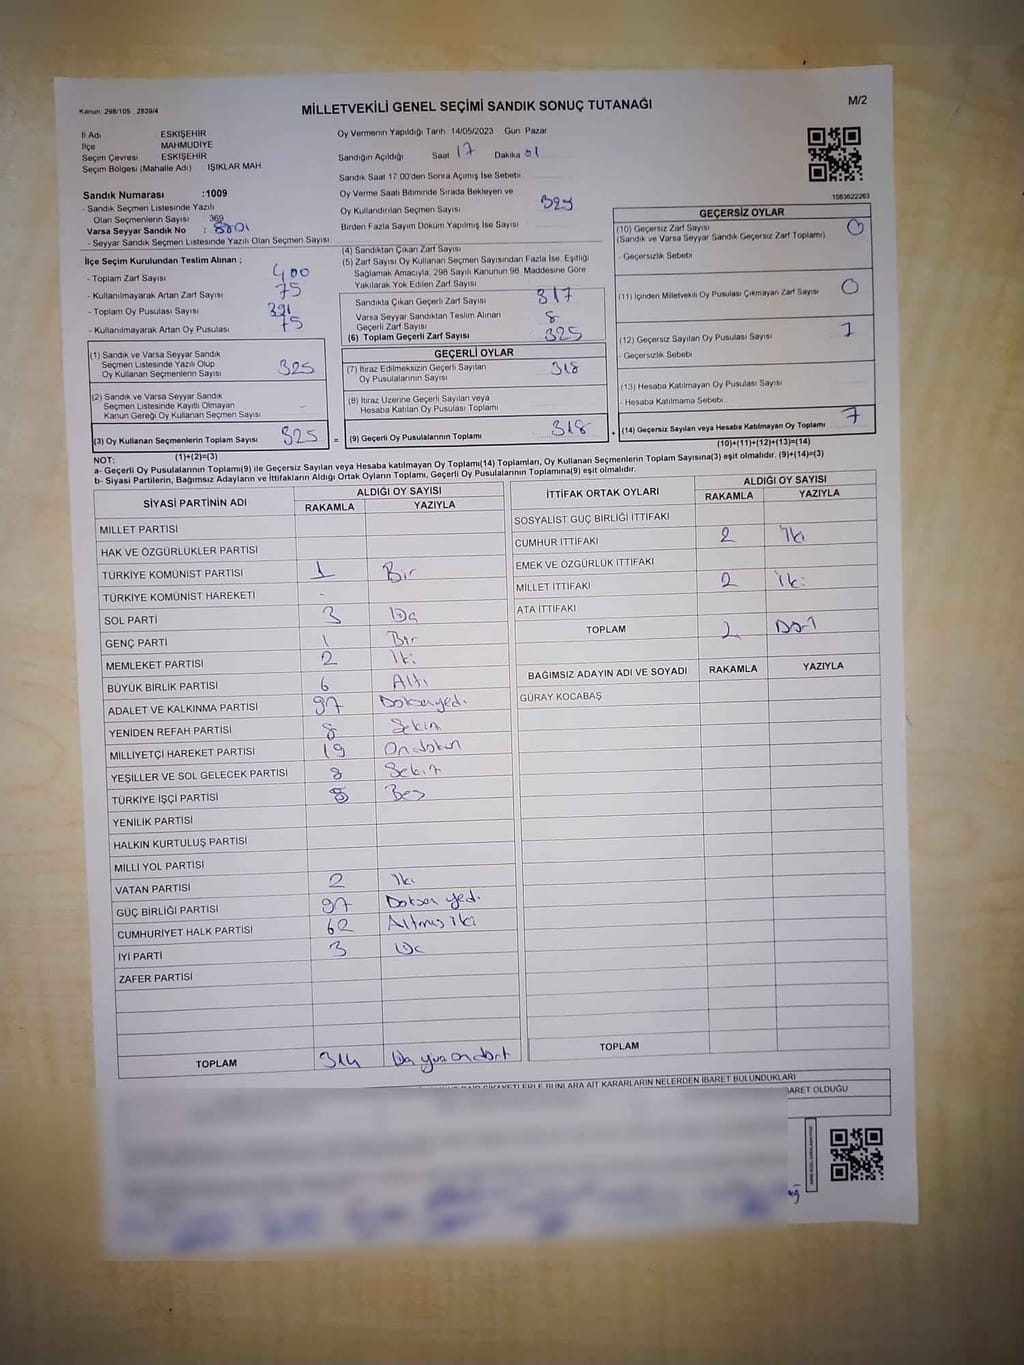 Kanun: 298/105 , 2839/4
MİLLETVEKİLİ GENEL SEÇİMİ SANDIK SONUÇ TUTANAĞI
M/2
İl Adı ESKİŞEHİR
İlçe MAHMUDİYE
Seçim Çevresi ESKİŞEHİR
Seçim Bölgesi (Mahalle Adı) IŞIKLAR MAH
Oy Vermenin Yapıldığı Tarih 14/05/2023 Gün Pazar
Sandığın Açıldığı Saat 17 Dakika 01
Sandık Saat 17.00'den Sonra Açılmış İse Sebebi
Oy Verme Saati Bitiminde Sırada Bekleyen ve
Oy Kullandırılan Seçmen Sayısı 325
Birden Fazla Sayım Döküm Yapılmış İse Sayısı
1083622263
Sandık Numarası :1009
- Sandık Seçmen Listesinde Yazılı
Olan Seçmenlerin Sayısı 369
Varsa Seyyar Sandık No : 8801
- Seyyar Sandık Seçmen Listesinde Yazılı Olan Seçmen Sayısı:
İlçe Seçim Kurulundan Teslim Alınan ;
- Toplam Zarf Sayısı 400
- Kullanılmayarak Artan Zarf Sayısı 75
- Toplam Oy Pusulası Sayısı 391
- Kullanılmayarak Artan Oy Pusulası 75
(1) Sandık ve Varsa Seyyar Sandık
Seçmen Listesinde Yazılı Olup
Oy Kullanan Seçmenlerin Sayısı 325
(2) Sandık ve Varsa Seyyar Sandık
Seçmen Listesinde Kayıtlı Olmayan
Kanun Gereği Oy Kullanan Seçmen Sayısı
(3) Oy Kullanan Seçmenlerin Toplam Sayısı 325 =
(1)+(2)=(3)
(4) Sandıktan Çıkan Zarf Sayısı
(5) Zarf Sayısı Oy Kullanan Seçmen Sayısından Fazla İse, Eşitliği
Sağlamak Amacıyla, 298 Sayılı Kanunun 98. Maddesine Göre
Yakılarak Yok Edilen Zarf Sayısı
Sandıkta Çıkan Geçerli Zarf Sayısı 317
Varsa Seyyar Sandıktan Teslim Alınan
Geçerli Zarf Sayısı 8
(6) Toplam Geçerli Zarf Sayısı 325
GEÇERLİ OYLAR
(7) İtiraz Edilmeksizin Geçerli Sayılan
Oy Pusulalarının Sayısı 318
(8) İtiraz Üzerine Geçerli Sayılan veya
Hesaba Katılan Oy Pusulası Toplamı
(9) Geçerli Oy Pusulalarının Toplamı 318 +
GEÇERSİZ OYLAR
(10) Geçersiz Zarf Sayısı 0
(Sandık ve Varsa Seyyar Sandık Geçersiz Zarf Toplamı)
- Geçersizlik Sebebi
(11) İçinden Milletvekili Oy Pusulası Çıkmayan Zarf Sayısı 0
(12) Geçersiz Sayılan Oy Pusulası Sayısı 7
- Geçersizlik Sebebi
(13) Hesaba Katılmayan Oy Pusulası Sayısı
- Hesaba Katılmama Sebebi
(14) Geçersiz Sayılan veya Hesaba Katılmayan Oy Toplamı 7
(10)+(11)+(12)+(13)=(14)
NOT:
a- Geçerli Oy Pusulalarının Toplamı(9) ile Geçersiz Sayılan veya Hesaba katılmayan Oy Toplamı(14) Toplamları, Oy Kullanan Seçmenlerin Toplam Sayısına(3) eşit olmalıdır. (9)+(14)=(3)
b- Siyasi Partilerin, Bağımsız Adayların ve İttifakların Aldığı Ortak Oyların Toplamı, Geçerli Oy Pusulalarının Toplamına(9) eşit olmalıdır.
SİYASİ PARTİNİN ADI ALDIĞI OY SAYISI
RAKAMLA YAZIYLA
MİLLET PARTİSİ
HAK VE ÖZGÜRLÜKLER PARTİSİ
TÜRKİYE KOMÜNİST PARTİSİ 1 Bir
TÜRKİYE KOMÜNİST HAREKETİ -
SOL PARTİ 3 Üç
GENÇ PARTİ 1 Bir
MEMLEKET PARTİSİ 2 İki
BÜYÜK BİRLİK PARTİSİ 6 Altı
ADALET VE KALKINMA PARTİSİ 97 Doksanyedi
YENİDEN REFAH PARTİSİ 8 Sekiz
MİLLİYETÇİ HAREKET PARTİSİ 19 Ondokuz
YEŞİLLER VE SOL GELECEK PARTİSİ 8 Sekiz
TÜRKİYE İŞÇİ PARTİSİ Beş
YENİLİK PARTİSİ
HALKIN KURTULUŞ PARTİSİ
MİLLİ YOL PARTİSİ
VATAN PARTİSİ 2 İki
GÜÇ BİRLİĞİ PARTİSİ 97 Doksan yedi
CUMHURİYET HALK PARTİSİ 62 Altmış iki
İYİ PARTİ 3 Üç
ZAFER PARTİSİ
TOPLAM 314 Üç yüz on dört
İTTİFAK ORTAK OYLARI ALDIĞI OY SAYISI
RAKAMLA YAZIYLA
SOSYALİST GÜÇ BİRLİĞİ İTTİFAKI
CUMHUR İTTİFAKI 2 İki
EMEK VE ÖZGÜRLÜK İTTİFAKI
MİLLET İTTİFAKI 2 İki
ATA İTTİFAKI
TOPLAM 2 Dört
BAĞIMSIZ ADAYIN ADI VE SOYADI RAKAMLA YAZIYLA
GÜRAY KOCABAŞ
TOPLAM
KARARLARIN NELERDEN İBARET BULUNDUKLARI
İBARET OLDUĞU